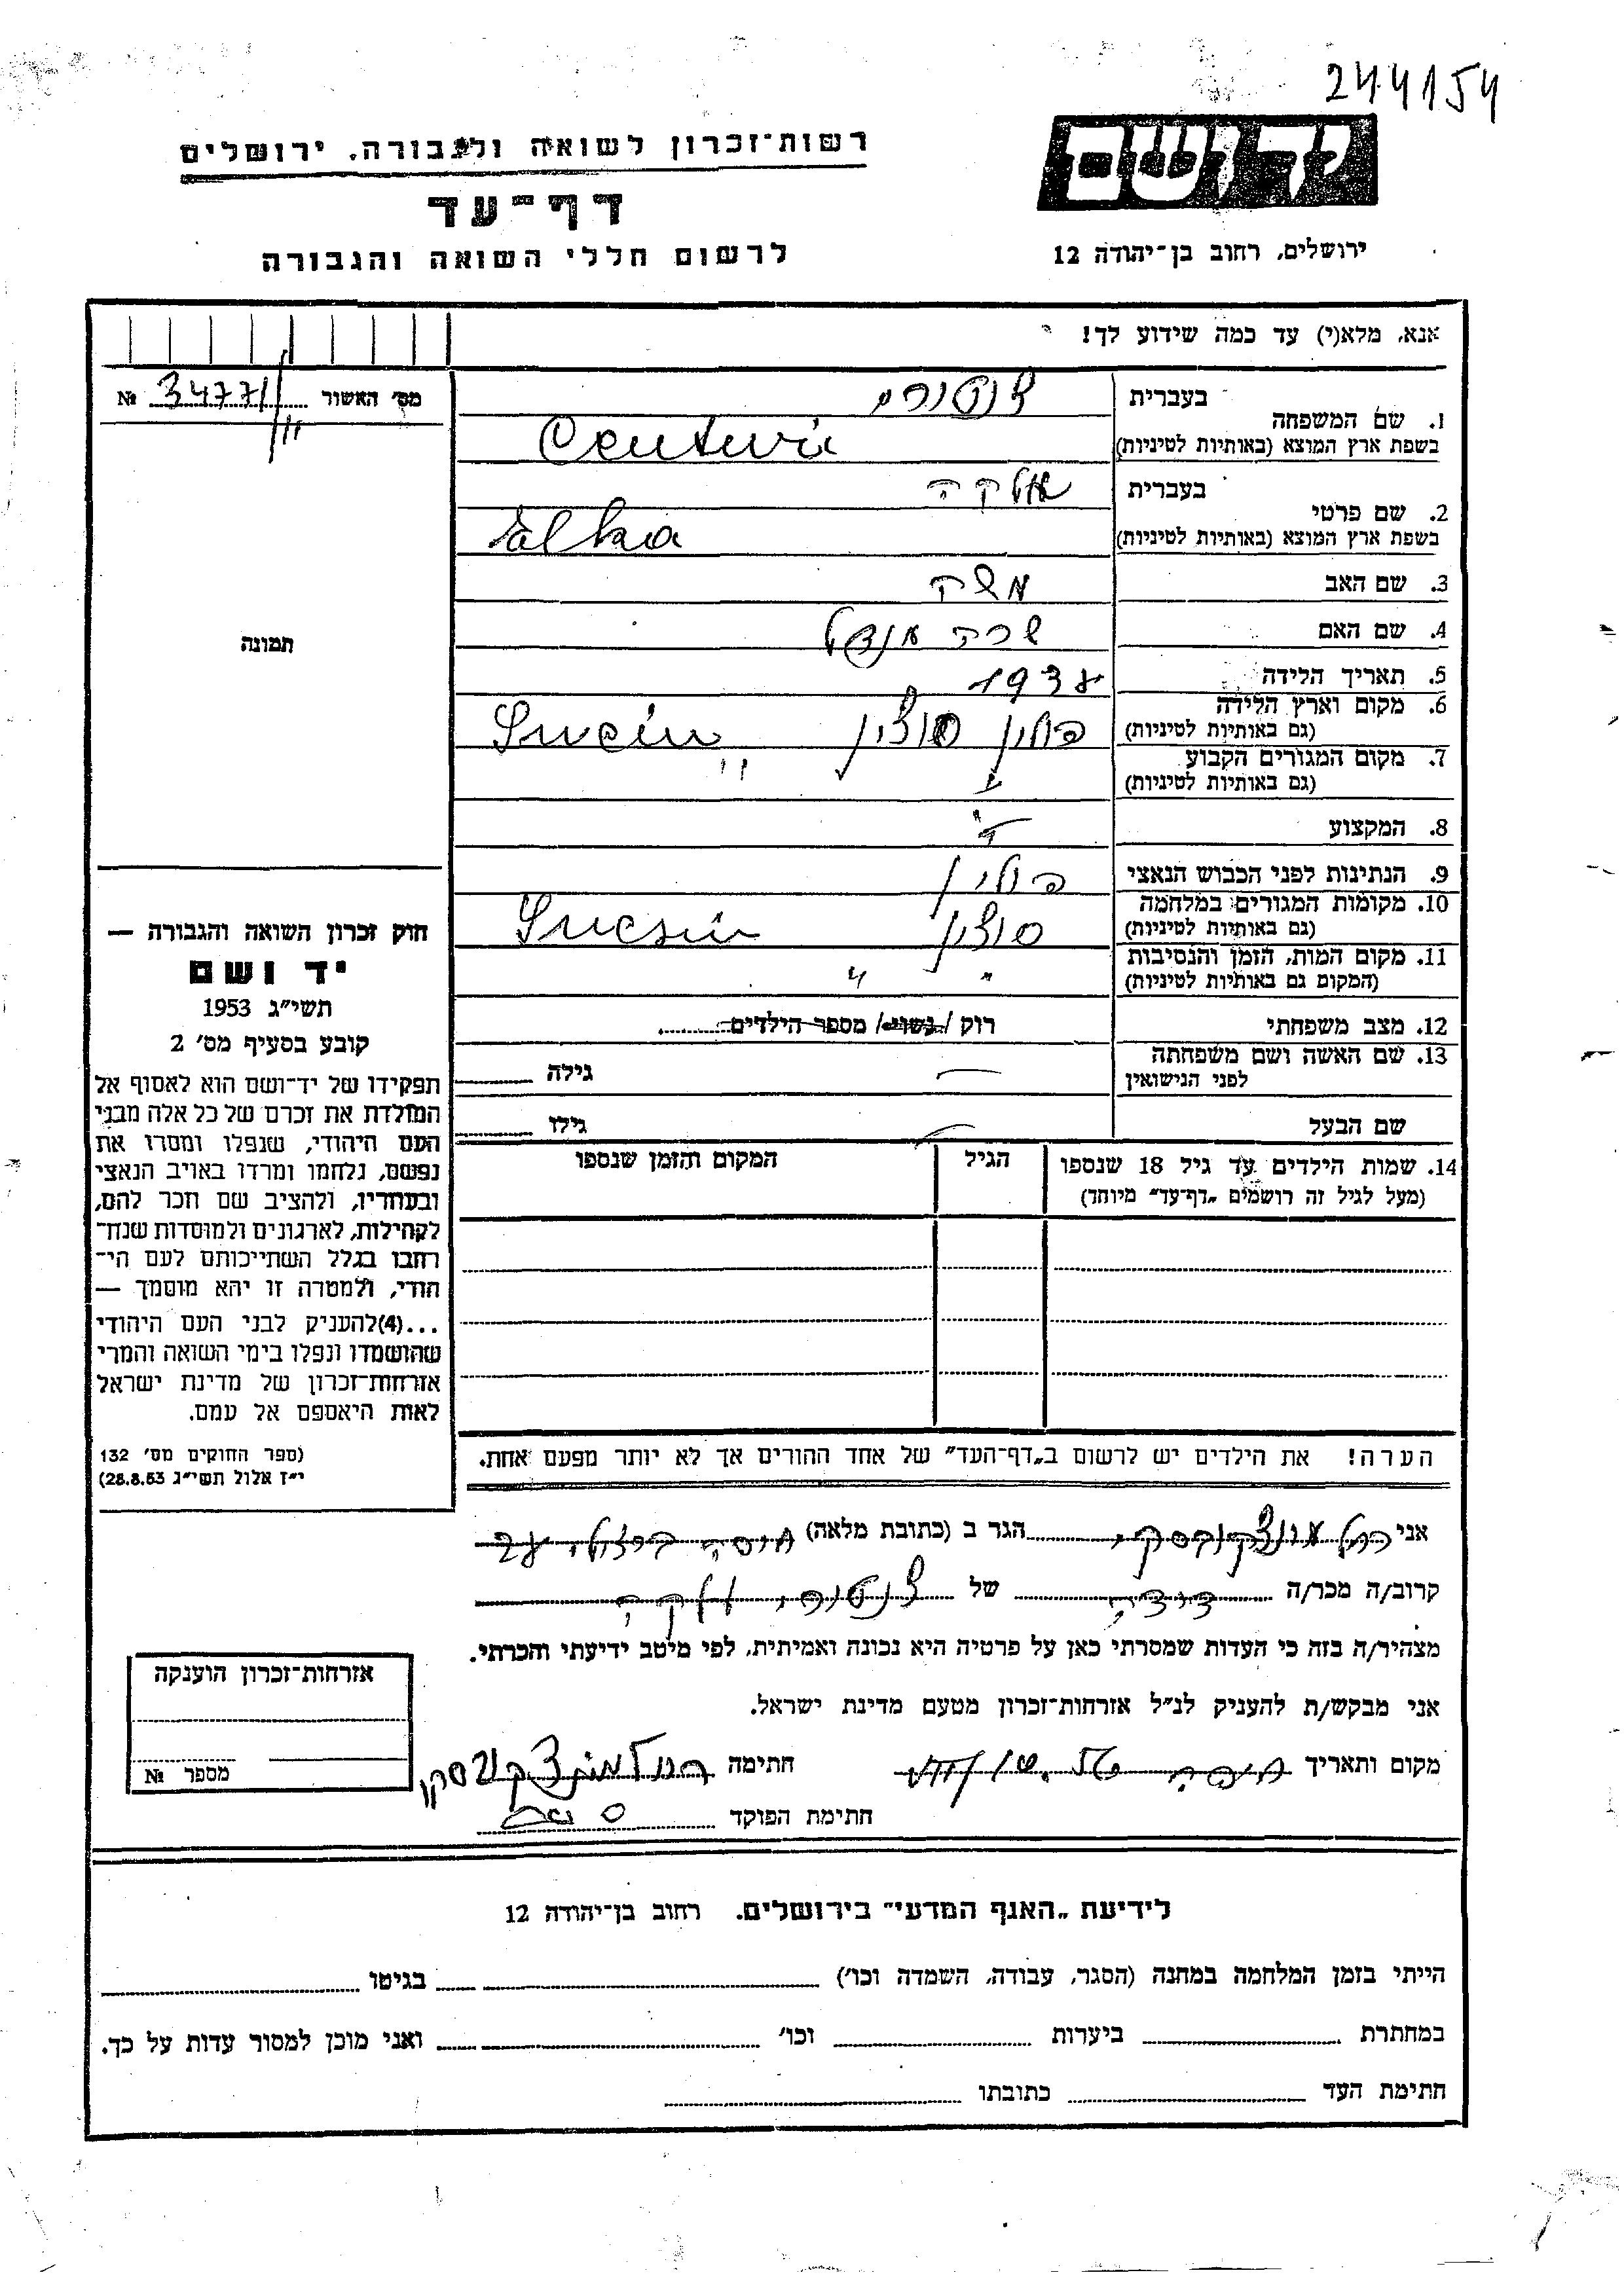 244154
יד ושם
רשות־זכרון לשואה ולגבורה. ירושלים
דף־עד
לרשום חללי השואה והגבורה
ירושלים, רחוב בן־יהודה 12
אנא, מלא(י) עד כמה שידוע לך!
מס׳ האשור 34771 №
1. שם המשפחה
בעברית צנטורי
בשפת ארץ המוצא (באותיות לטיניות) Centuri
2. שם פרטי
בעברית אלקה
בשפת ארץ המוצא (באותיות לטיניות) Elka
3. שם האב משה
4. שם האם שרה
5. תאריך הלידה
6. מקום וארץ הלידה
(גם באותיות לטיניות) פולין סוצין Sucin
7. מקום המגורים הקבוע
(גם באותיות לטיניות) " "
8. המקצוע
9. הנתינות לפני הכבוש הנאצי פולין
10. מקומות המגורים במלחמה
(גם באותיות לטיניות) סוצין
11. מקום המות, הזמן והנסיבות
(המקום גם באותיות לטיניות) " "
12. מצב משפחתי רוק / נשוי / מספר הילדים
13. שם האשה ושם משפחתה
לפני הנישואין גילה
שם הבעל גילו
14. שמות הילדים עד גיל 18 שנספו הגיל המקום והזמן שנספו
(מעל לגיל זה רושמים „דף־עד״ מיוחד)
תמונה
חוק זכרון השואה והגבורה —
יד ושם
תשי״ג 1953
קובע בסעיף מס׳ 2
תפקידו של יד־ושם הוא לאסוף אל
המולדת את זכרם של כל אלה מבני
העם היהודי, שנפלו ומסרו את
נפשם, נלחמו ומרדו באויב הנאצי
ובעוזריו, ולהציב שם וזכר להם,
לקהילות, לארגונים ולמוסדות שנח־
רבו בגלל השתייכותם לעם הי־
הודי, ולמטרה זו יהא מוסמך —
...(4)להעניק לבני העם היהודי
שהושמדו ונפלו בימי השואה והמרי
אזרחות־זכרון של מדינת ישראל
לאות היאספם אל עמם.
(ספר החוקים מס׳ 132
י״ז אלול תשי״ג 28.8.53)
הערה! את הילדים יש לרשום ב„דף־העד״ של אחד ההורים אך לא יותר מפעם אחת.
אני הגר ב (כתובת מלאה) חיפה
קרוב/ה מכר/ה דודה של צנטורי אלקה
מצהיר/ה בזה כי העדות שמסרתי כאן על פרטיה היא נכונה ואמיתית, לפי מיטב ידיעתי והכרתי.
אני מבקש/ת להעניק לנ״ל אזרחות־זכרון מטעם מדינת ישראל.
מקום ותאריך חיפה חתימה
חתימת הפוקד
אזרחות־זכרון הוענקה
מספר №
לידיעת „האגף המדעי״ בירושלים. רחוב בן־יהודה 12
הייתי בזמן המלחמה במחנה (הסגר, עבודה, השמדה וכו׳) בגיטו
במחתרת ביערות וכו׳ ואני מוכן למסור עדות על כך.
חתימת העד כתובתו